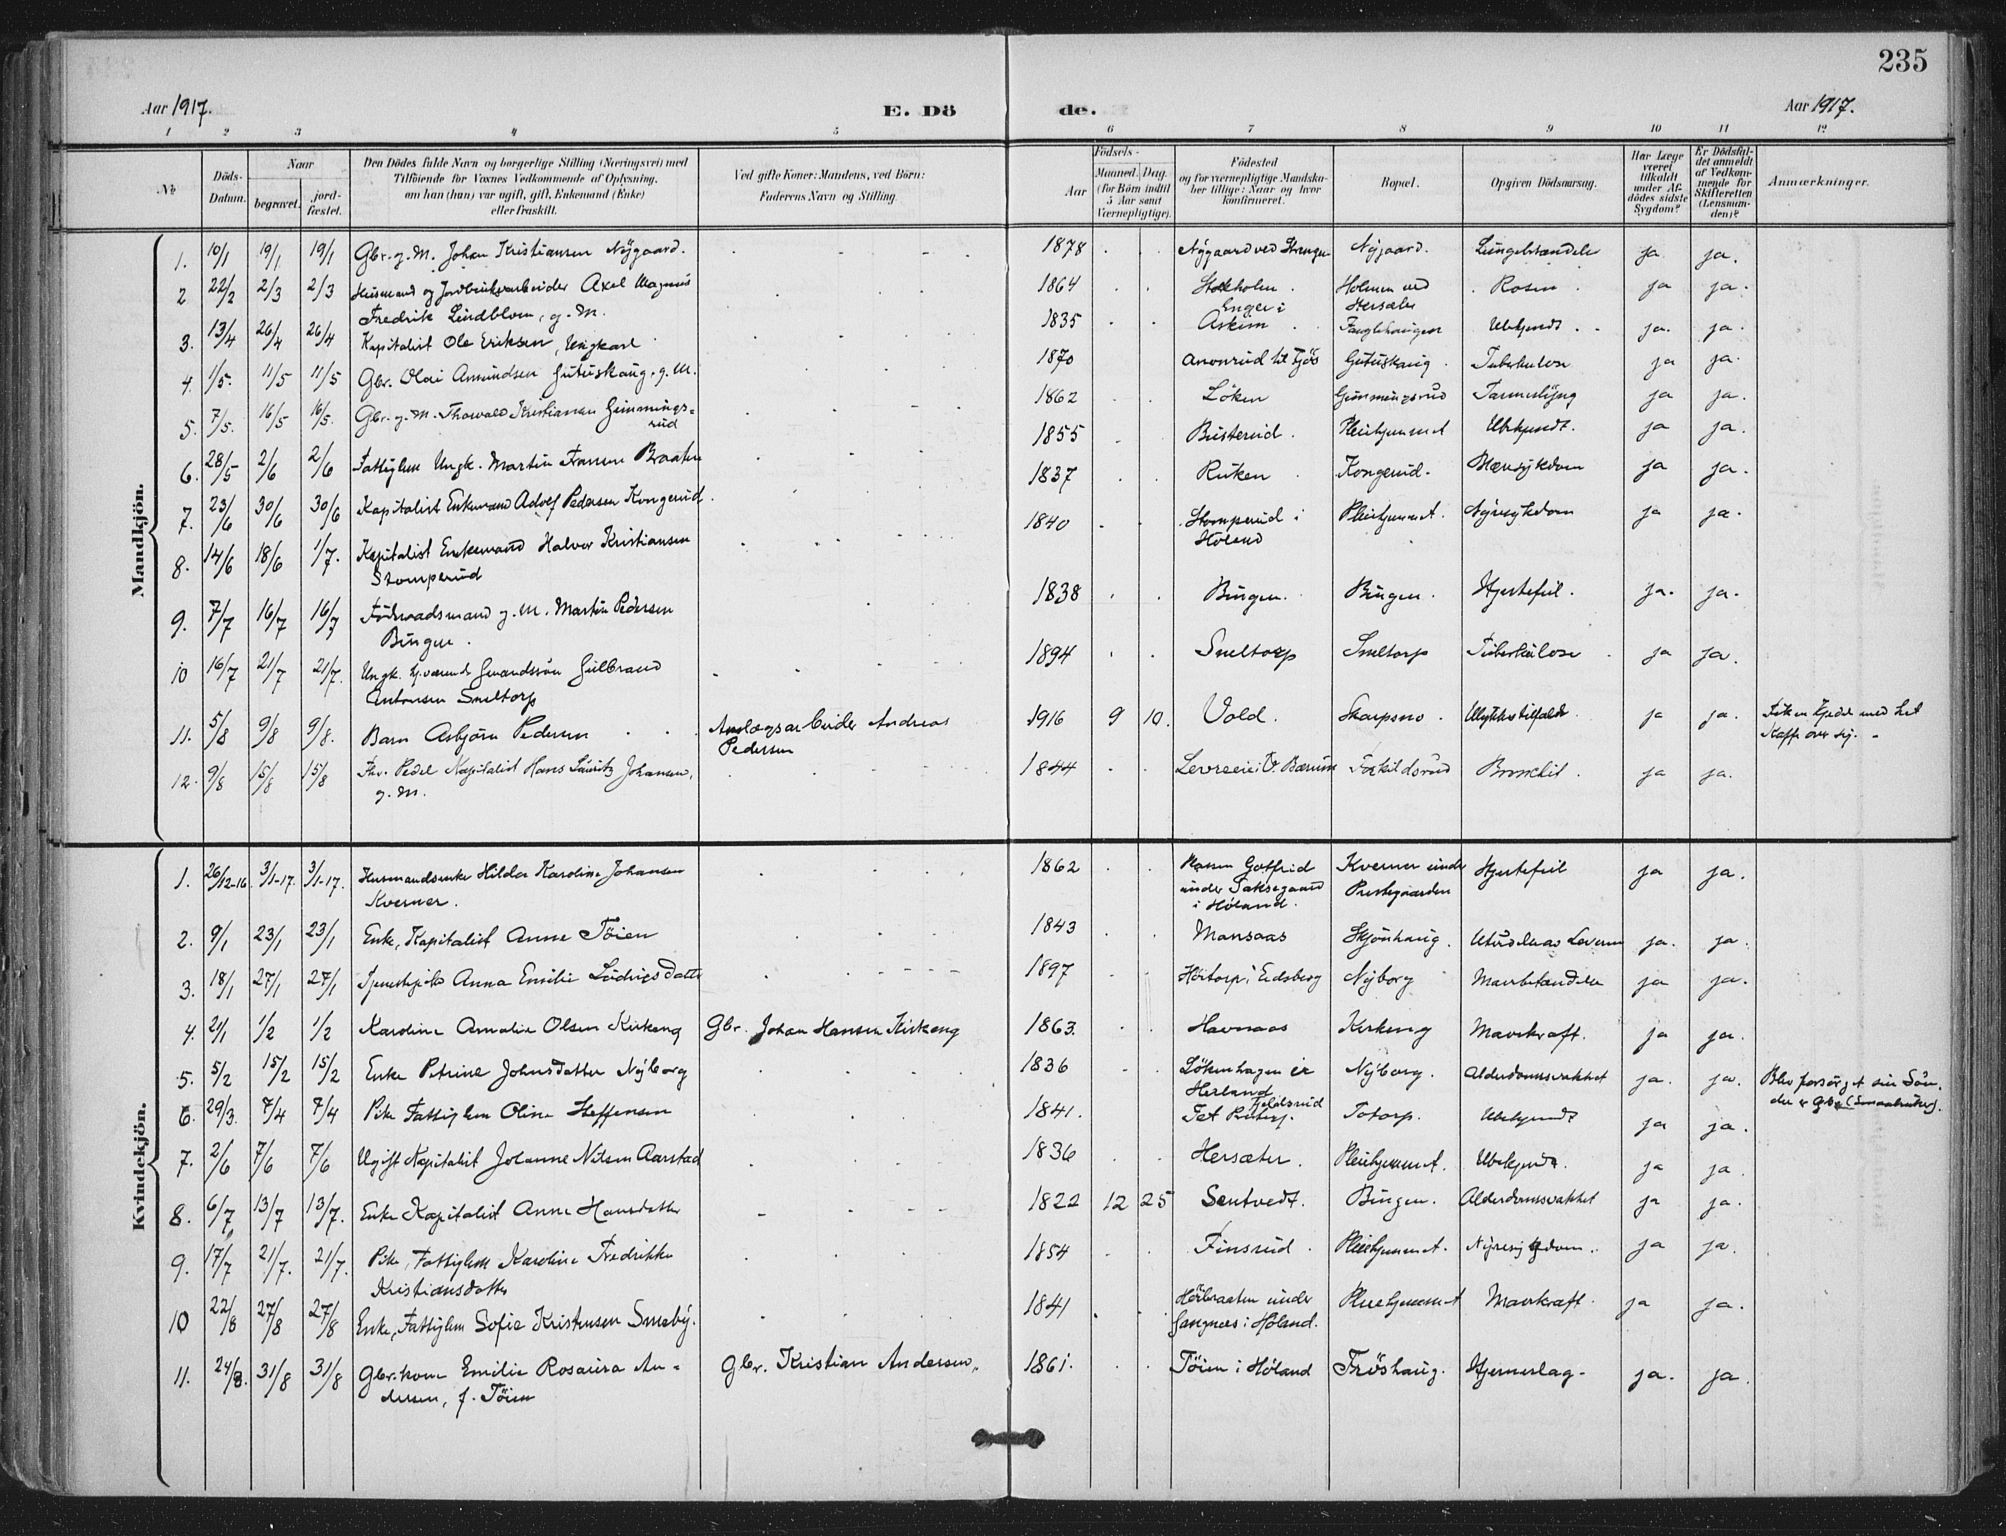 235
Aar 1917. E. Dö de. Aar 1917.
1 2 3 4 5 6 7 8 9 10 11 12
№
Döds-Datum.
Naar
begravet.
jord-fæstet.
Den Dödes fulde Navn og borgerlige Stilling (Næringsvei) med
Tilföiende for Voxnes Vedkommende af Oplysning,
om han (hun) var ugift, gift, Enkemand (Enke)
eller fraskilt.
Ved gifte Koner: Mandens, ved Börn:
Faderens Navn og Stilling.
Födsels-
Aar
Maaned. Dag.
(for Börn indtil
5 Aar samt
Værnepligtige).
Födested
og for værnepligtige Mandska-
ber tillige: Naar og hvor
konfirmeret.
Bopæl.
Opgiven Dödsaarsag.
Har Læge
været
tilkaldt
under Af-
dödes sidste
Sygdom?
Er Dödsfal-
det anmeldt
af Vedkom-
mende for
Skifteretten
(Lensman-
den)?
Anmærkninger.
Mandkjön.
1. 10/1 19/1 19/1 Gbr. g. M. Johan Kristiansen Nygaard. 1878 Nygaard ved Nygaard. Lungebetændelse ja ja.
2 22/2 2/3 2/3 Husmand og Jordbruksarbeider Axel Magnus
Fredrik Lindblom, g. M. 1864 Stokholm. Holmen ved
Hersæter Rosen ja ja.
3. 13/4 26/4 26/4 Kapitalist Ole Eriksen, Ungkarl 1835 Enger i
Askim Ubekjendt ja. ja.
4. 1/5. 11/5 11/5 Gbr. Olai Amundsen Gutuskaug. g. M. 1870 Gutuskaug. Tuberkulose ja ja.
5. 7/5. 16/5 16/5. Gbr. g. M. Thorvald Kristiansen Gimmings-
rud 1862 Löken Gimmingsrud Tarmslyng ja ja.
6. 28/5 2/6 2/6 Fattiglem Ungk. Martin Fransen Braaten 1855 Busterud. Pleiehjemmet Ubekjendt. ja ja.
7. 23/6 30/6 30/6 Kapitalist Enkemand Adolf Pedersen Kongerud 1837 Ruken Kongerud. Blæresykdom ja ja.
8. 14/6 18/6 1/7. Kapitalist Enkemand Halvor Kristiansen
Stomperud 1840 Stomperud i
Höland Pleiehjemmet. Nyresykdom ja ja.
9. 7/7 16/7 16/7 Föderaadsmand g. M. Martin Pedersen
Bingen. 1838 Bingen. Bingen. Hjertefeil. ja. ja.
10 16/7 21/7 21/7. Ungk. hjemværende Gaardssön Gulbrand
Antonsen Smeltorp 1894 Smeltorp Smeltorp Tuberkulose ja ja.
11. 5/8 9/8 9/8. Barn Asbjörn Pedersen Anlægsarbeider Andreas
Pedersen 1916 9 10. Vold. Skarpsno. Ulykkestilfælde ja ja. med het
Kaffe over sig.
12. 9/8 15/8 15/8 Kapitalist Hans Lauritz Johansen,
g. M. 1844 V. Bærum Bronchit. ja ja.
Kvindekjön.
1. 26/12-16. 3/1-17. 3/1-17. Husmandsenke Hilda Karoline Johansen
Kverner. 1862 Gotfrid
under Taksegaard
i Höland. Kverner under
Prestegaarden Hjertefeil ja ja.
2. 9/1 23/1 23/1 Enke, Kapitalist Anne Töien 1843 Monsaas Skjönhaug. ja. ja.
3. 18/1 27/1 27/1 Tjenestepike Anna Emilie Ludvigsdatter 1897 Höitorp i Eidsberg Nyborg Mavebetændelse ja ja.
4. 21/1 1/2 1/2 Karoline Amalie Olsen Kirkeng Gbr. Johan Hansen Kirkeng 1863. Havnaas Kirkeng Mavekraft. ja ja.
5. 5/2 15/2 15/2 Enke Petrine Johnsdatter Nyborg 1836 Lökenhagen i
Herland Nyborg. Alderdomssvakhet ja. ja. Blev forsörget sin Sön.
der er Gbr. (Smaabruker).
6. 29/3. 7/4 7/4 Pike Fattiglem Oline Steffensen 1841. Fjeldsrud Totorp. Ubekjendt ja ja.
7. 2/6 7/6 7/6 Ugift Kapitalist Johanne Nilsen Aarstad 1836 Hersæter. Pleiehjemmet. Ubekjendt. ja ja.
8. 6/7 13/7 13/7. Enke Kapitalist Anne Hansdatter 1822 12 25 Sentvedt. Bingen. Alderdomssvakhet ja ja.
9. 17/7 21/7. 21/7. Pike, Fattiglem Karoline Fredrikke
Kristiansdatter 1854 Finsrud. Pleiehjemmet. Nyresygdom. ja ja.
10 22/8 27/8 27/8 Enke, Fattiglem Sofie Kristensen Smeby. 1841 under
i Höland. Pleiehjemmet Mavekraft. ja ja.
11. 24/8. 31/8 31/8 Gbr.kone Emilie Rosaura An-
dersen, f. Töien Gbr. Kristian Andersen 1861. Töien i Höland Fröshaug. Hjerneslag. ja. ja.